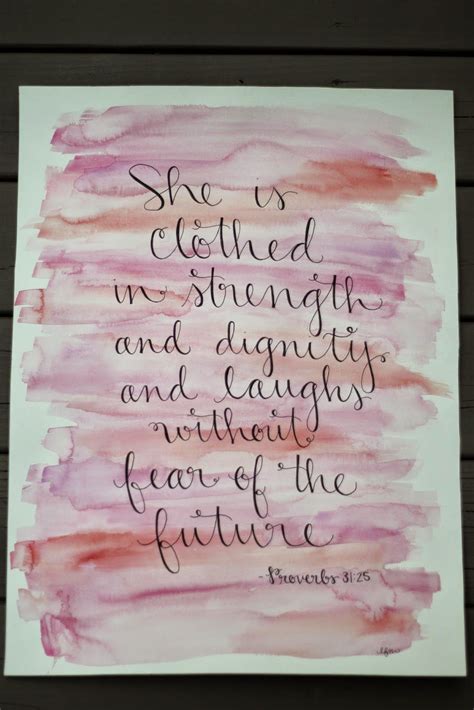 She is
clothed
in strength
and dignity
and laughs
without
fear of the
future
-Proverbs 31:25